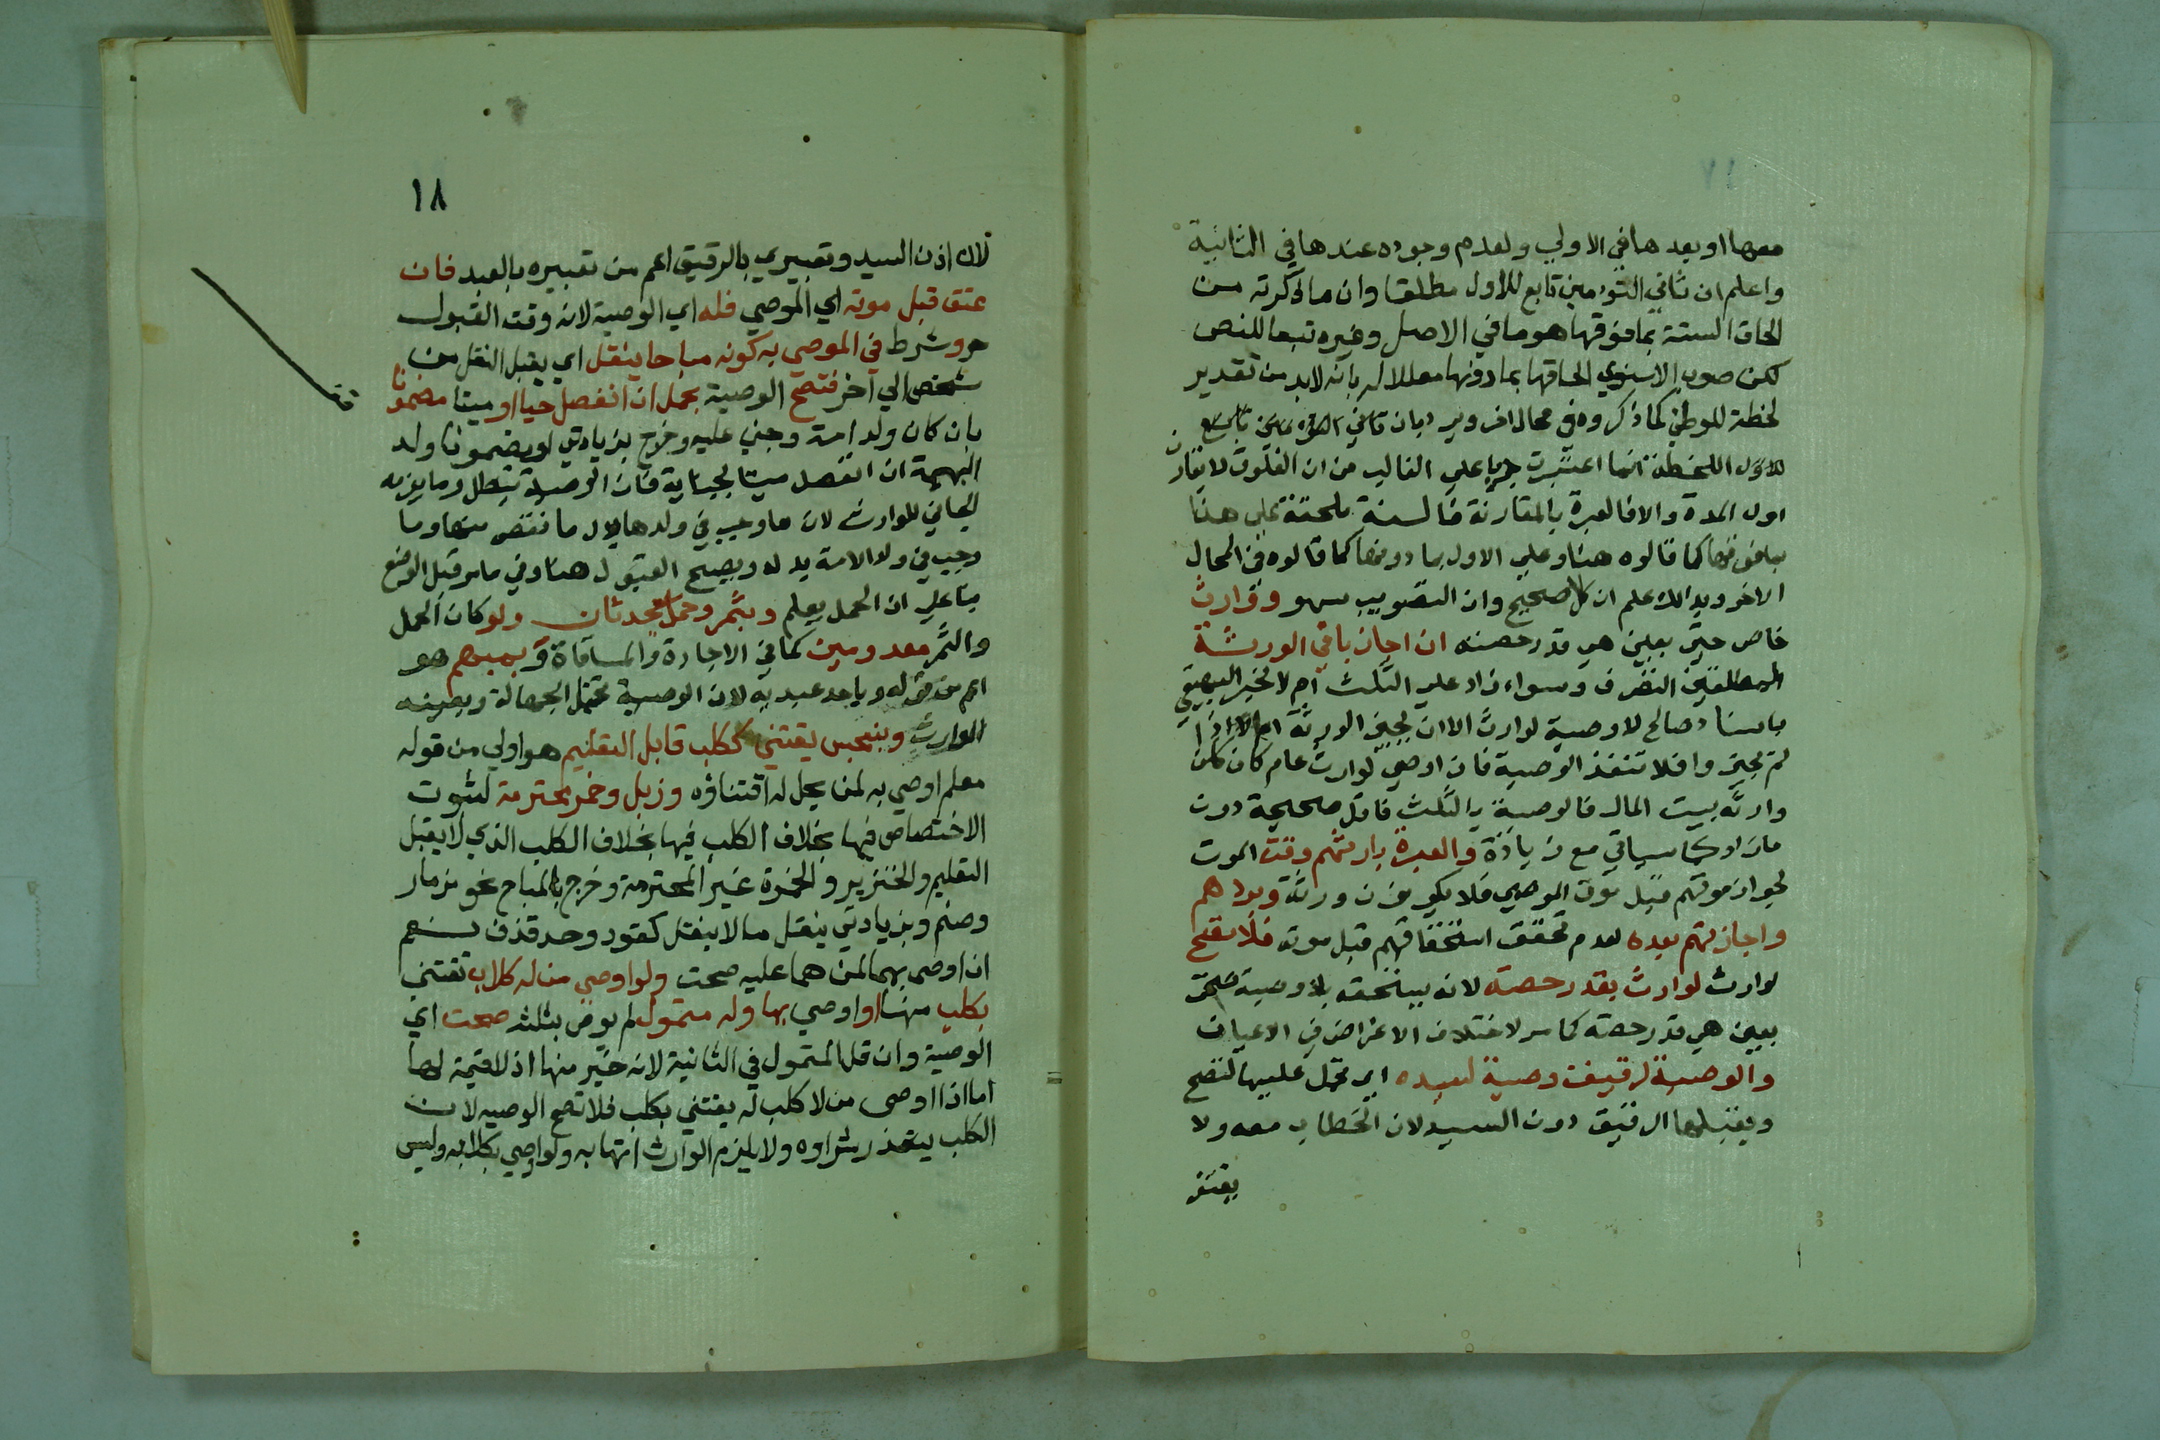 معها او بعدها في الاولي ولعدم وجوده عندها في الثانية
واعلم ان ثاني التومين تابع للاول مطلقا وان ما ذكرته من
الحاق الستة بما فوقها هو ما في الاصل وغيره تبعا للنص
لكن صوب الاسنوي الحاقها بما دونها معللا له بانه لابد من تقدير
لحظة للوطئ كما ذكروه في محال اخر ويرد بان
للاول اللحظة انما اعتبرت جريا علي الغالب من ان العلوق لا يقارن
اول المدة والا فالعبرة بالمقارنة فالستة ملحقة علي هذا
بما فوقها كما قالوه هنا وعلي الاول بما دونها كما قالوه في المحال
الاخر وبذلك علم ان كلا صحيح وان التصويب سهو ولوارث
خاص حتى بعين هي قدر حصته ان اجاز باقي الورثة
المطلقين التصرف وسواء زاد علي الثلث ام لا لخبر البيهقي
باسناد صالح لا وصية لوارث الا ان يجيز الورثة اما اذا
لم يجيزوا فلا تنفذ الوصية فان اوصي لوارث عام كان كان
وارثه بيت المال فالوصية بالثلث فاقل صحيحة دون
ما زاد كما سياتي مع زيادة والعبرة بارثهم وقت الموت
لجواز موتهم قبل موت الموصي فلا يكونون ورثة وبردهم
واجازتهم بعده لعدم تحقق استحقاقهم قبل موته فلا تصح
لوارث لوارث بقدر حصته لانه يستحقه بلا وصية
بعين هي قدر حصته كما مر لاختلاف الاغراض في الاعيان
والوصية لرقيق وصية لسيده اي تحمل عليها لتصح
ويقبلها الرقيق دون السيد لان الخطاب معه ولا
يفتقر
١٨
ذلك اذن السيد وتعبيري بالرقيق اعم من تعبيره بالعبد فان
عتق قبل موته اي الموصي فله اي الوصية لانه وقت القبول
حر وشرط في الموصي به كونه مباحا ينقل اي يقبل النقل من
شخص الي آخر فتصح الوصية بحمل ان انفصل حيا او ميتا مضمونا
بان كان ولد امة وجني عليه وخرج بزيادتي او مضمونا ولد
البهيمة ان انفصل ميتا بجناية فان الوصية تبطل وما يغرمه
الجاني للوارث لان ما وجب في ولدها بدل ما نقص منها وما
وجب في ولد الامة بدله ويصح القبول هنا وفي ما مر قبل الوضع
بناعلي ان الحمل يعلم وبثمر وحمل يحدثان ولو كان الحمل
والثمر معدومين كما في الاجارة والمساقاة وبمبهم هو
اعم من قوله وباحد عبديه لان الوصية تحتمل الجهالة ويعينه
الوارث وبنجس يقتني ككلب قابل التعليم هو اولي من قوله
معلم اوصي به لمن يحل له اقتناؤه وزبل وخمر محترمة لثبوت
الاختصاص فيها بخلاف الكلب فيها بخلاف الكلب الذي لا يقبل
التعليم والخنزير والخمرة غير المحترمة وخرج بالمباح نحو مزمار
وصنم وبزيادتي ينقل ما لا ينقل كقود وحد قذف نعم
ان اوصي بهما لمن هما عليه صحت ولو اوصي من له كلاب تقتني
بكلب منها او اوصي بها وله متمول لم يوص بثلثه صحت اي
الوصية وان قل المتمول في الثانية لانه خير منها اذ لا قيمة لها
اما اذا اوصي من لا كلب له يقتني بكلب فلا تصح الوصيه لان
الكلب يتعذر شراوه ولا يلزم الوارث اتهابه ولو اوصي بكلابه وليس